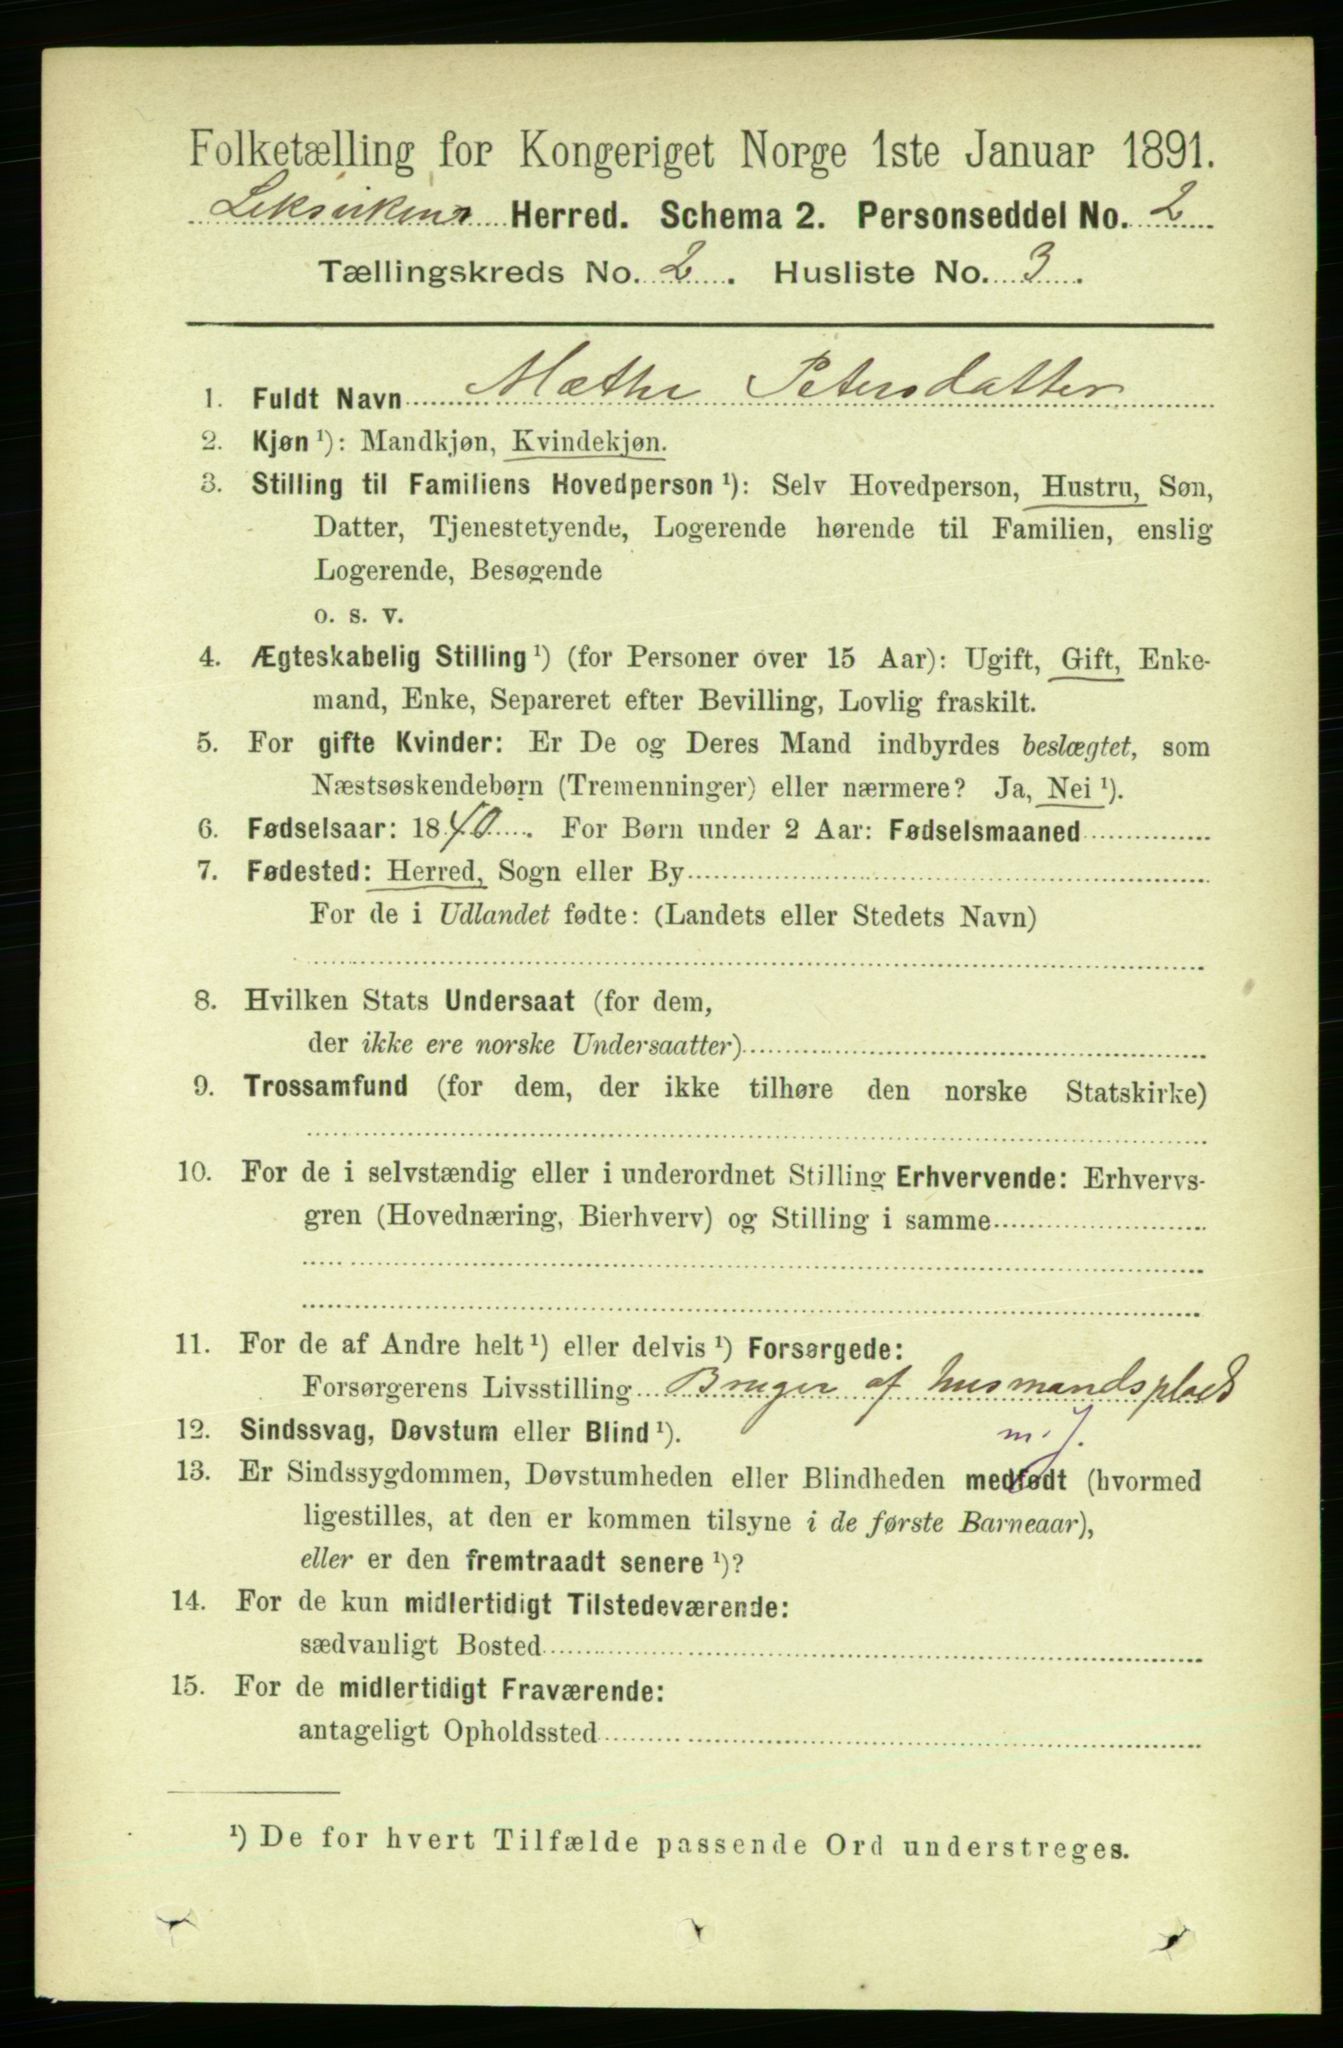 Folketælling for Kongeriget Norge 1ste Januar 1891.
Leksvikens Herred. Schema 2. Personseddel No. 2
Tællingskreds No. 2. Husliste No. 3.
1. Fuldt Navn Mathe Petersdatter
2. Kjøn ¹): Mandkjøn, Kvindekjøn.
3. Stilling til Familiens Hovedperson ¹): Selv Hovedperson, Hustru, Søn,
Datter, Tjenestetyende, Logerende hørende til Familien, enslig
Logerende, Besøgende
o. s. v.
4. Ægteskabelig Stilling ¹) (for Personer over 15 Aar): Ugift, Gift, Enke-
mand, Enke, Separeret efter Bevilling, Lovlig fraskilt.
5. For gifte Kvinder: Er De og Deres Mand indbyrdes beslægtet, som
Næstsøskendebørn (Tremenninger) eller nærmere? Ja, Nei ¹).
6. Fødselsaar: 1840. For Børn under 2 Aar: Fødselsmaaned
7. Fødested: Herred, Sogn eller By
For de i Udlandet fødte: (Landets eller Stedets Navn)
8. Hvilken Stats Undersaat (for dem,
der ikke ere norske Undersaatter)
9. Trossamfund (for dem, der ikke tilhøre den norske Statskirke)
10. For de i selvstændig eller i underordnet Stilling Erhvervende: Erhvervs-
gren (Hovednæring, Bierhverv) og Stilling i samme
11. For de af Andre helt ¹) eller delvis ¹) Forsørgede:
Forsørgerens Livsstilling Bruger af husmandsplads
m. J.
12. Sindssvag, Døvstum eller Blind ¹).
13. Er Sindssygdommen, Døvstumheden eller Blindheden medfødt (hvormed
ligestilles, at den er kommen tilsyne i de første Barneaar),
eller er den fremtraadt senere ¹)?
14. For de kun midlertidigt Tilstedeværende:
sædvanligt Bosted
15. For de midlertidigt Fraværende:
antageligt Opholdssted
¹) De for hvert Tilfælde passende Ord understreges.